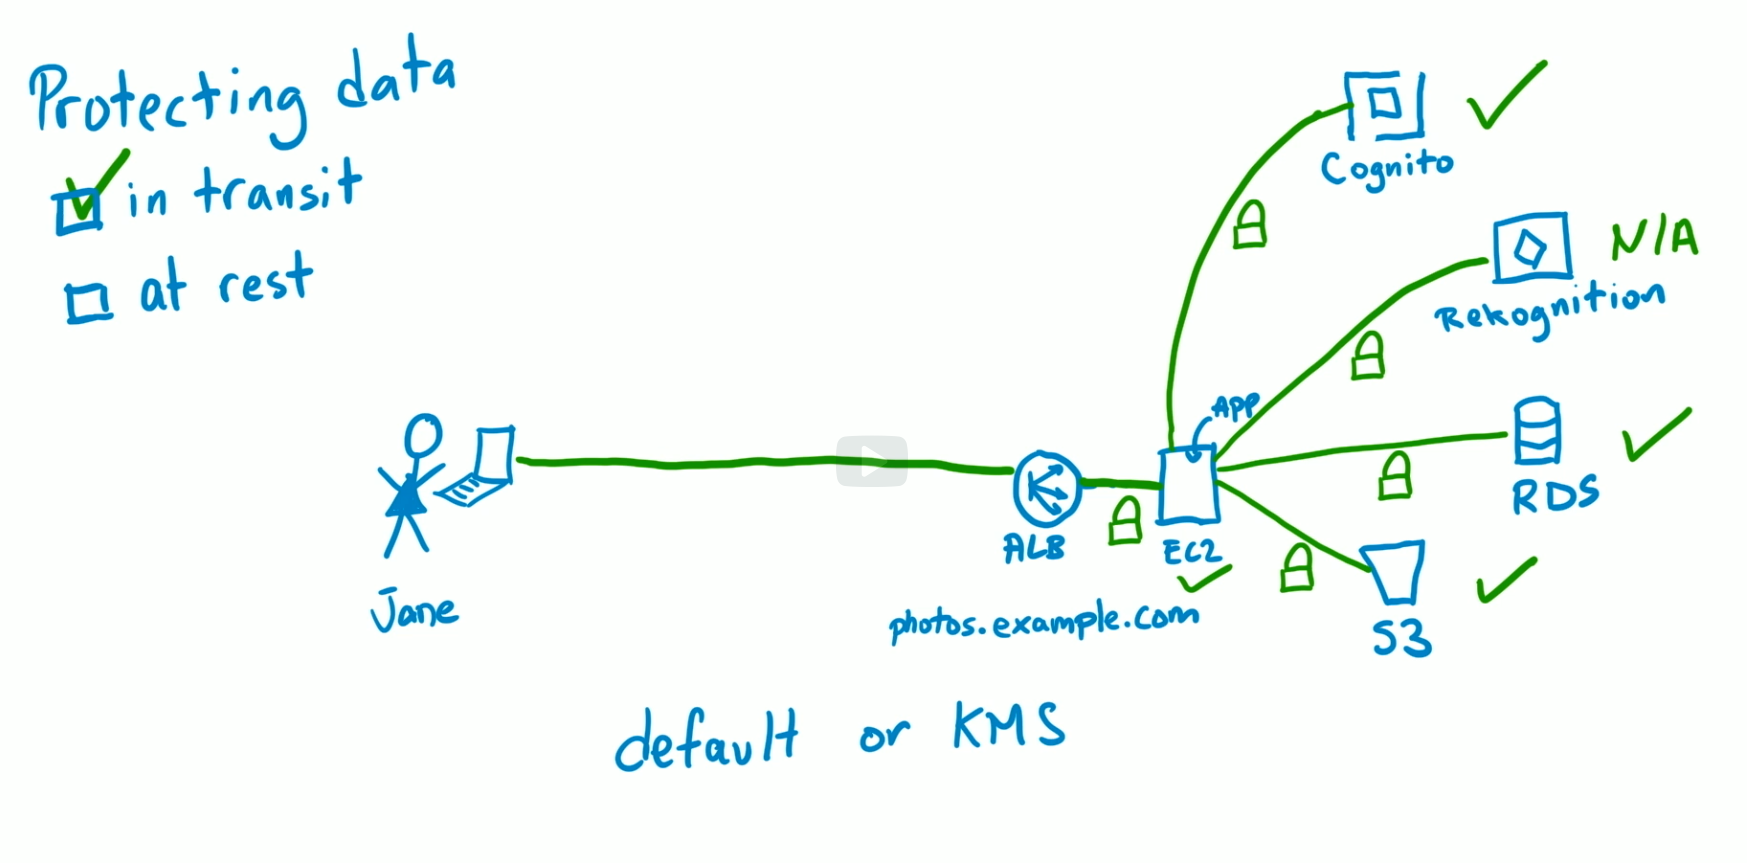 Protecting data
in transit
at rest
Cognito
N/A
Rekognition
APP
RDS
ALB
EC2
S3
Jane
photos.example.com
default or KMS